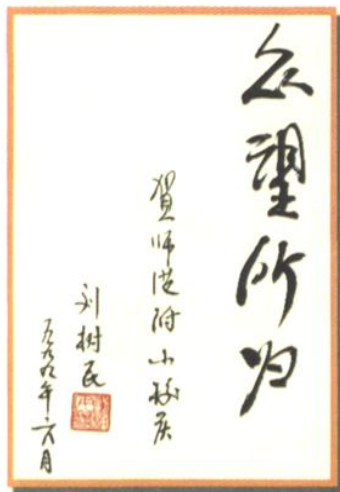 众望所归
賀师范附小校庆
刘树民
一九九九年六月